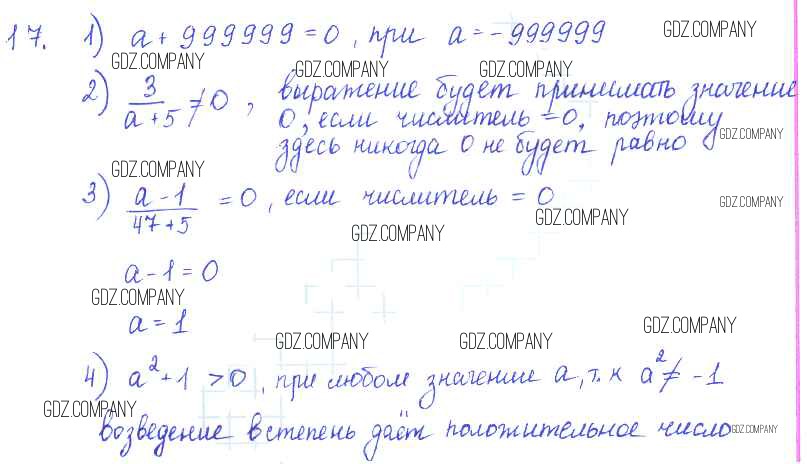 17. 1) a + 999999 = 0, при a = -999999 GDZ.COMPANY
GDZ.COMPANY GDZ.COMPANY GDZ.COMPANY
2) 3/(a+5) ≠ 0, выражение будет принимать значение
0, если числитель = 0, поэтому GDZ.COMPANY
здесь никогда 0 не будет равно
GDZ.COMPANY
3) (a-1)/(47+5) = 0, если числитель = 0 GDZ.COMPANY
GDZ.COMPANY GDZ.COMPANY
a-1=0
GDZ.COMPANY
a=1 GDZ.COMPANY
GDZ.COMPANY GDZ.COMPANY
4) a²+1 >0, при любом значении a, т.к a² ≠ -1
GDZ.COMPANY
возведение в степень даёт положительное число GDZ.COMPANY